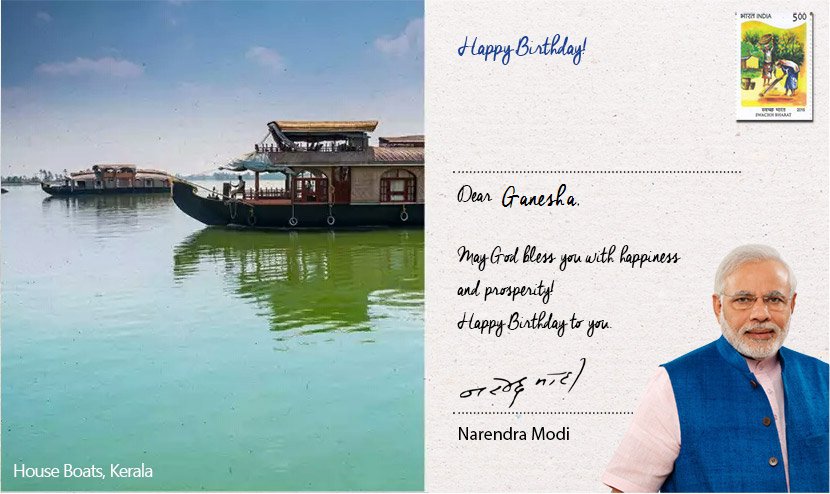 Happy Birthday!
भारत INDIA 500
स्वच्छ भारत
SWACHH BHARAT
Dear Ganesha,
May God bless you with happiness
and prosperity!
Happy Birthday to you.
नरेन्द्र मोदी
Narendra Modi
House Boats, Kerala